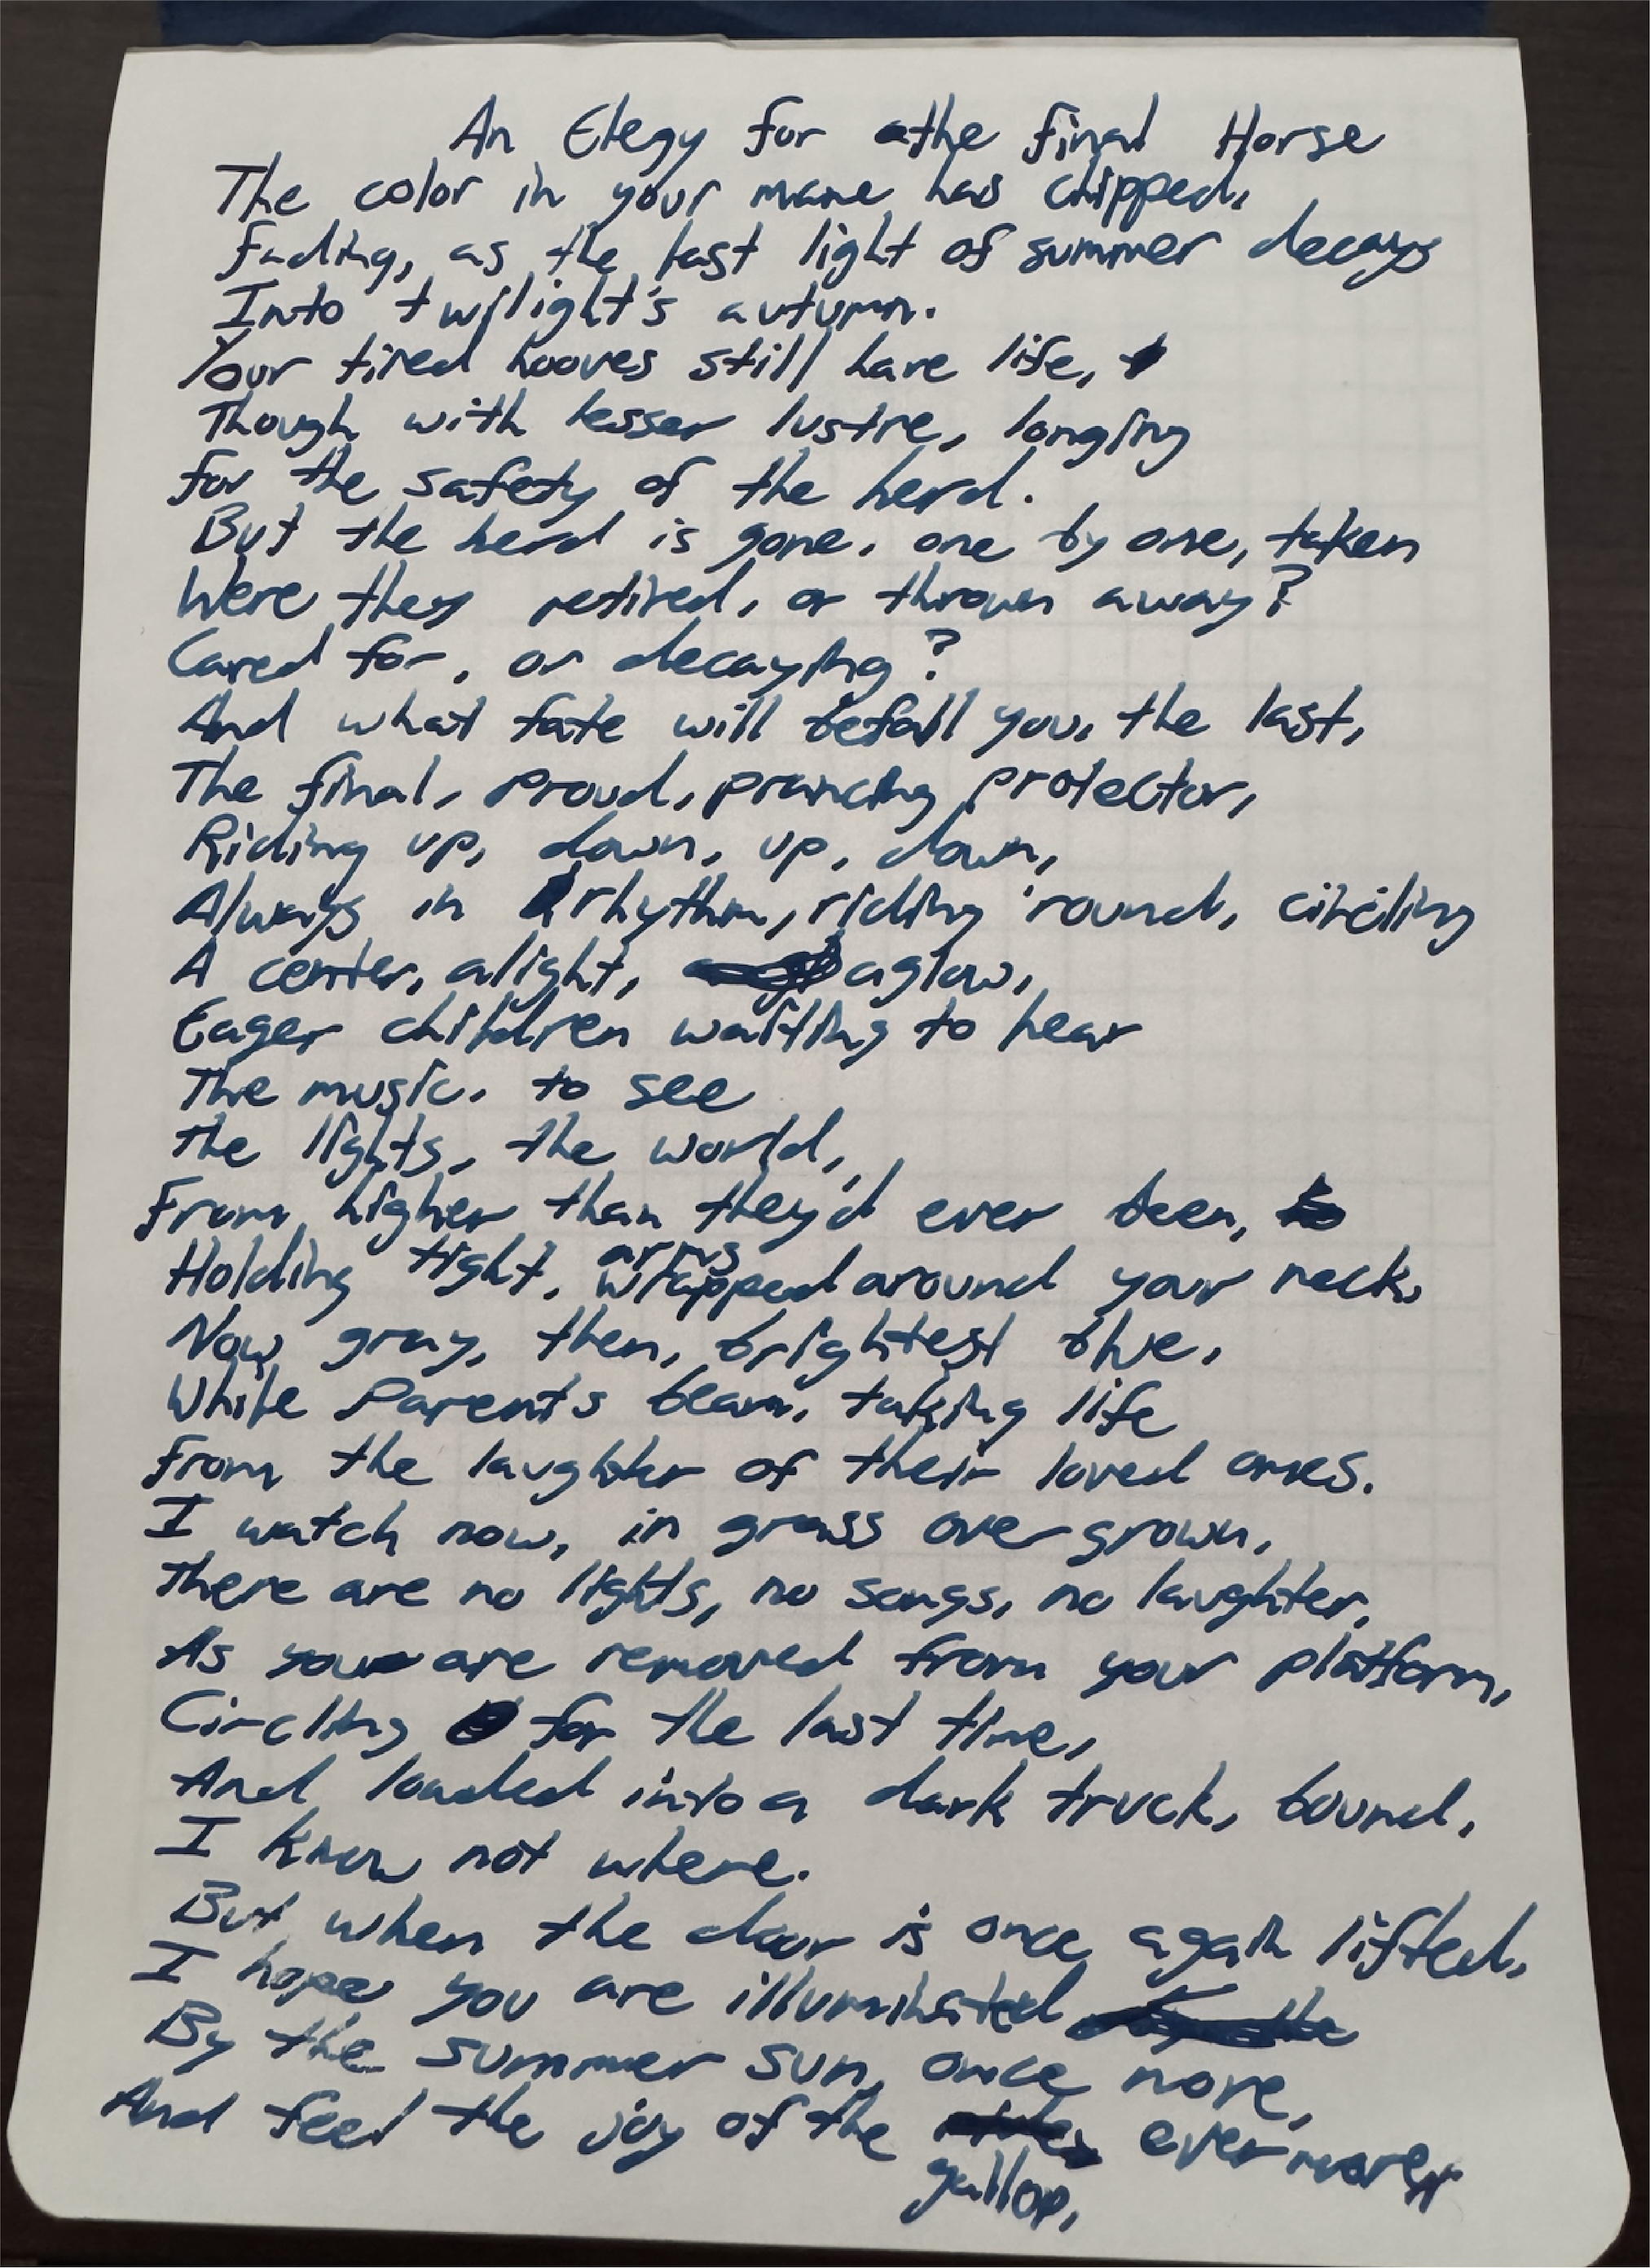 An Elegy for the Final Horse
The color in your mane has chipped,
Fading, as the last light of summer decays
Into twilight's autumn.
Your tired hooves still have life,
Though with lesser lustre, longing
For the safety of the herd.
But the herd is gone, one by one, taken
Were they retired, or thrown away?
Cared for, or decaying?
And what fate will befall you, the last,
The final, proud, prancing protector,
Riding up, down, up, down,
Always in rhythm, riding 'round, circling
A center, alight, aglow,
Eager children waiting to hear
The music, to see
The lights, the world,
From higher than they'd ever been,
Holding tight, arms wrapped around your neck,
Now gray, then, brightest blue,
While Parents beam, taking life
From the laughter of their loved ones.
I watch now, in grass overgrown,
There are no lights, no songs, no laughter,
As you are removed from your platform,
Circling for the last time,
And loaded into a dark truck, bound,
I know not where.
But when the door is once again lifted,
I hope you are illuminated
By the summer sun, once more,
And feel the joy of the gallop, evermore.